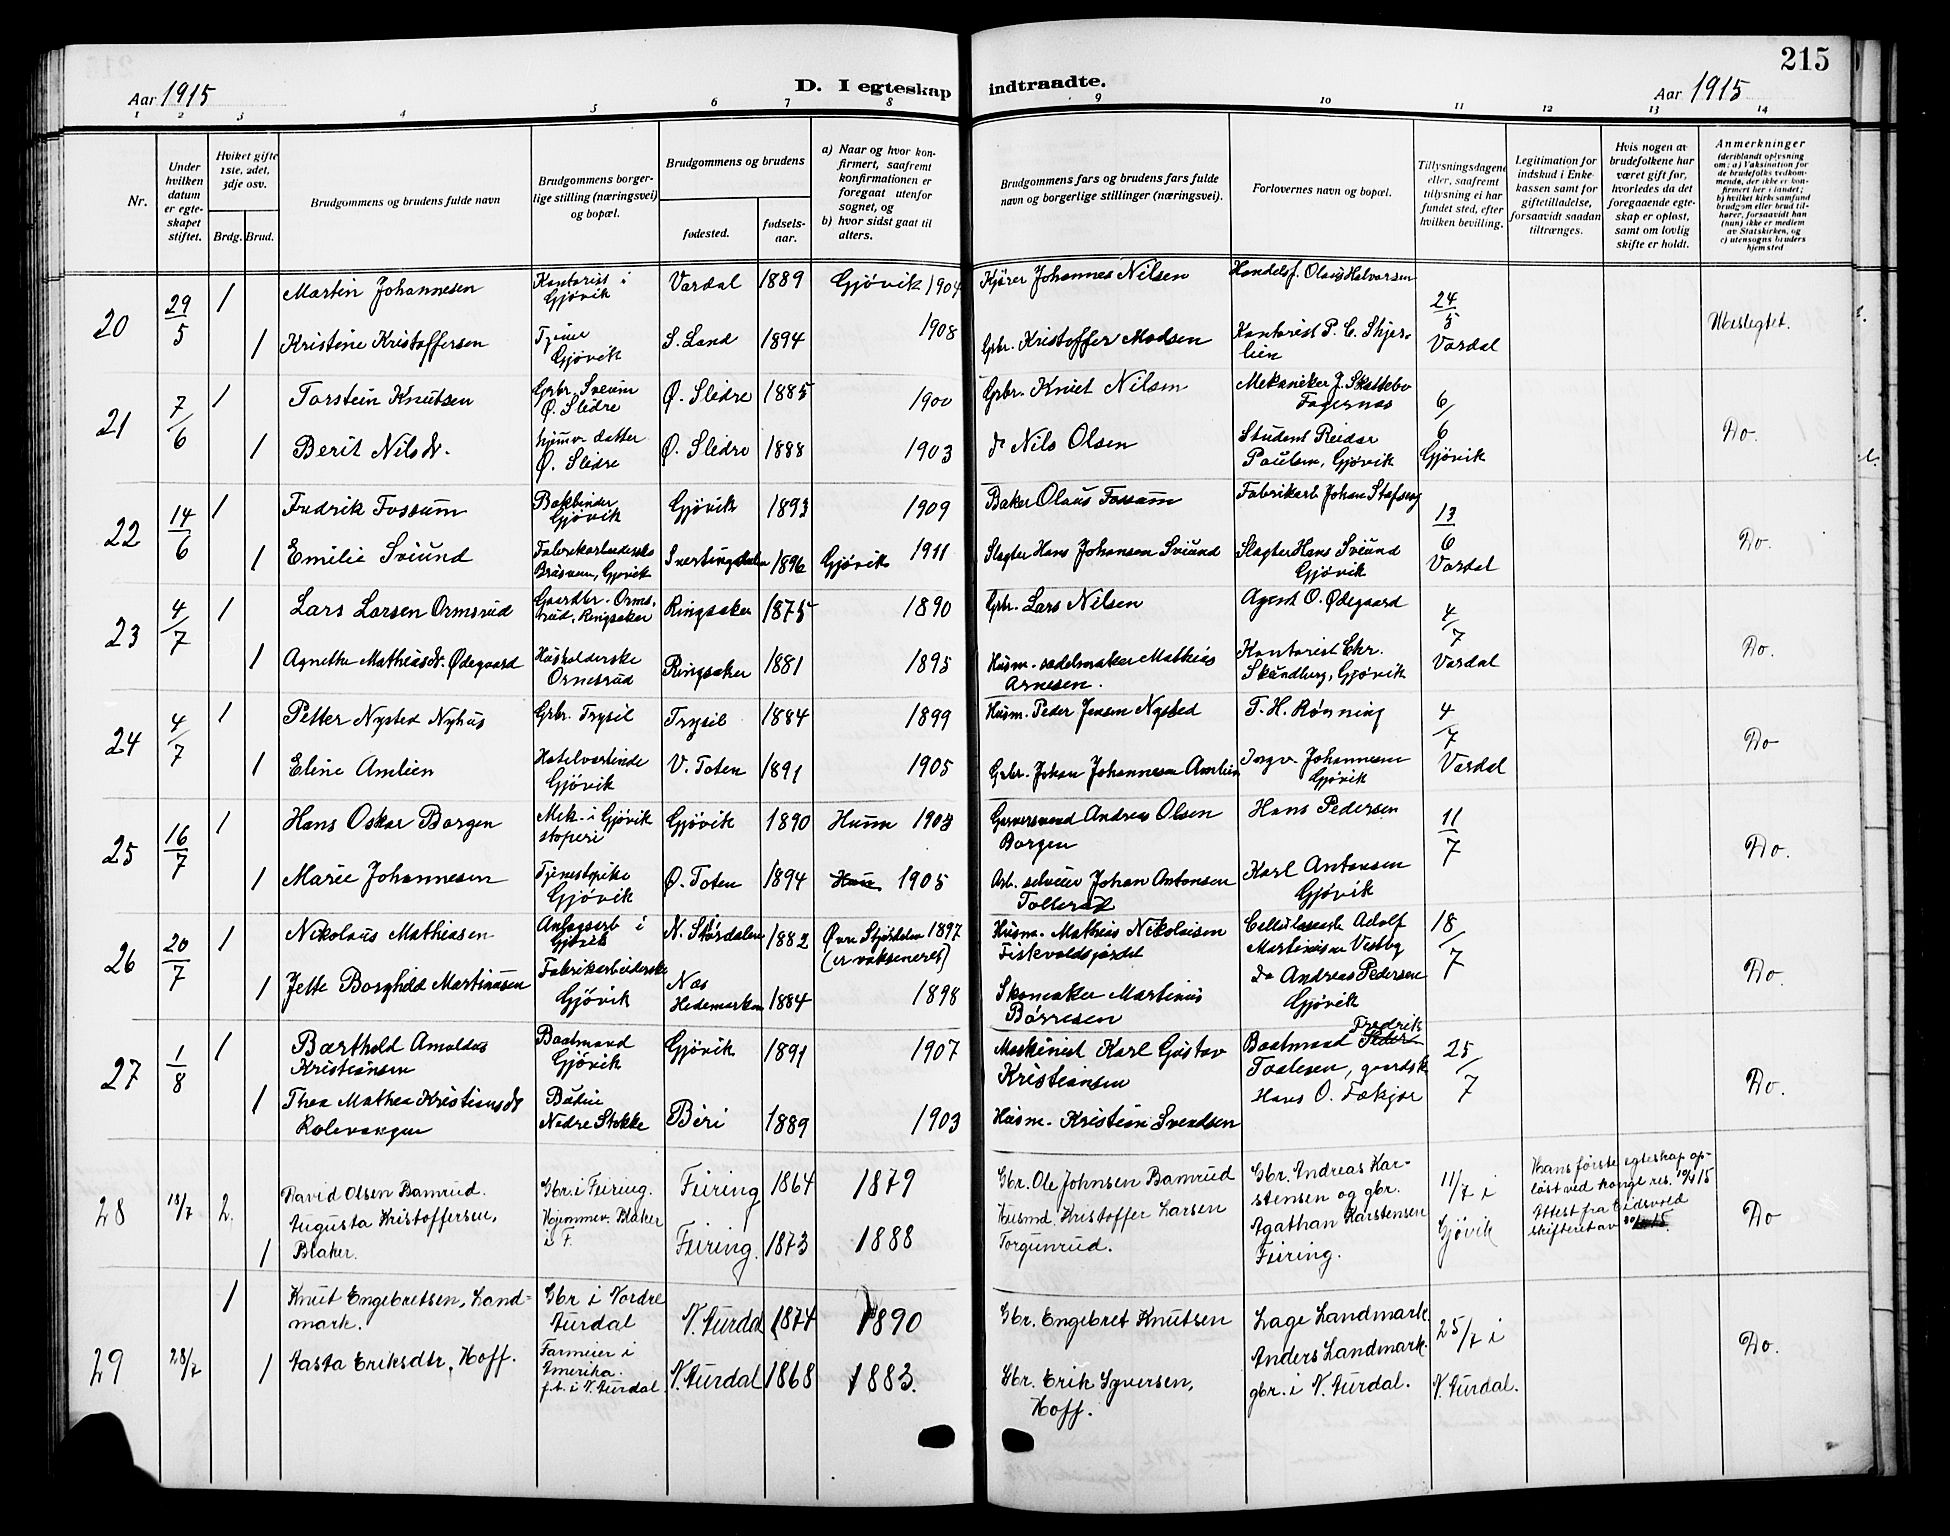 215
Aar 1915
D. I egteskap indtraadte.
Aar 1915
1 2 3 4 5 6 7 8 9 10 11 12 13 14
Nr.
Under hvilken datum er egteskapet stiftet.
Hvilket gifte 1ste, 2det, 3dje osv.
Brdg. Brud.
Brudgommens og brudens fulde navn
Brudgommens borgerlige stilling (næringsvei) og bopæl.
Brudgommens og brudens
fødested.
fødselsaar.
a) Naar og hvor konfirmert, saafremt konfirmationen er foregaat utenfor sognet, og
b) hvor sidst gaat til alters.
Brudgommens fars og brudens fars fulde navn og borgerlige stillinger (næringsvei).
Forlovernes navn og bopæl.
Tillysningsdagene eller, saafremt tillysning ei har fundet sted, efter hvilken bevilling.
Legitimation for indskud i Enkekassen samt for giftetilladelse, forsaavidt saadan tiltrænges.
Hvis nogen av brudefolkene har været gift før, hvorledes da det foregaaende egteskap er opløst, samt om lovlig skifte er holdt.
Anmerkninger
(deriblandt oplysning om: a) Vaksination for de brudefolks vedkommende, der ikke er konfirmert her i landet; b) hvilket kirkesamfund brudgom eller brud tilhører, forsaavidt han (hun) ikke er medlem av Statskirken, og c) utensogns bruders hjemsted
20 29/5 1 Martin Johannesen Kontorist i Gjøvik Vardal 1889 Gjøvik 1904 Kjører Johannes Nilsen Handelsf. Olaus Halvorsen 24/5 Vardal Ubeslegtet.
1 Kristine Kristoffersen Gjøvik S. Land 1894 1908 Grbr. Kristoffer Madsen Kontorist P. C. Skjerlien
21 7/6 1 Torstein Knutsen Grbr. Sveum Ø. Slidre Ø. Slidre 1885 1900 Grbr. Knut Nilsen Mekaniker J. Skattebo Fagernæs 6/6 Gjøvik Do.
1 Berit Nilsdr. hjemv. datter Ø. Slidre Ø. Slidre 1888 1903 do Nils Olsen Student Reidar Paulsen, Gjøvik
22 14/6 1 Fredrik Fossum Bokbinder Gjøvik Gjøvik 1893 1909 Baker Olaus Fossum Fabrikarb. Johan 13/6 Vardal Do.
1 Emilie Sviund Fabrikarbeiderske Gjøvik Snertingdalen 1896 Gjøvik 1911 Slagter Hans Johansen Sviund Slagter Hans Sviund Gjøvik
23 4/7 1 Lars Larsen Ormsrud Gaardbr. Ormsrud, Ringsaker Ringsaker 1875 1890 Grbr. Lars Nilsen Agent O. Ødegaard 4/7 Vardal Do.
1 Agnethe Mathiasdr. Ødegaard Husholderske Ormsrud Ringsaker 1881 1895 Husm. sadelmaker Mathias Arnesen. Kontorist Chr. Skundberg, Gjøvik
24 4/7 1 Petter Nysted Nyhus Grbr. Trysil Trysil 1884 1899 Husm. Peder Jensen Nysted T. H. Rønning 4/7 Vardal Do
1 Eline Amlien Hotelvertinde Gjøvik V. Toten 1891 1905 Grbr. Johan Johannesen Amlien Johannesen Gjøvik
25 16/7 1 Hans Oskar Borgen Mek. i Gjøvik støperi Gjøvik 1890 Hunn 1903 Garversvend Andreas Olsen Borgen Hans Pedersen 11/7 Do.
1 Marie Johannesen Tjenestpike Gjøvik Ø. Toten 1894 Hunn 1905 Arb. Johan Antonsen Tollerud Karl Antonsen Gjøvik
26 20/7 1 Nikolaus Mathiasen Anlægsarb i Gjøvik N. Størdalen 1882 Øvre Stjørdalen 1897 (er vaksineret) Husm. Mathias Nikolaisen Adolf Martinusen Vestby 18/7 Do.
1 Jette Borghild Martinusen Fabrikarbeiderske Gjøvik Næs Hedemarken 1884 1898 Skomaker Martinus Børresen do Andreas Pedersen Gjøvik
27 1/8 1 Barthold Amaldus Kristiansen Baatmand Gjøvik Gjøvik 1891 1907 Maskinist Karl Gustav Kristiansen Baatmand Peder Fredrik 25/7 Do.
1 Thea Mathea Kristiansdr Rolevangen Budeie Nedre Stokke Biri 1889 1903 Husm. Kristian Svendsen Hans O. Fækjor
28 18/7 2. David Olsen Bamrud. Gbr. i Feiring. Feiring 1864 1879 Gbr. Ole Johnsen Bamrud Gbr. Andreas Karstensen og gbr. Agathan Karstensen Feiring. 11/7 i Gjøvik Hans første egteskap opløst ved kongl. res. 19/4 15 Attest fra Eidsvold skifteret av Do
1 Augusta Kristoffersen, Blaker. Hjemmev. Blaker i F. Feiring. 1873 1888 Husmd. Kristoffer Larsen Torgunrud.
29 28/7 1 Knut Engebretsen, Landmark. Gbr. i Nordre Aurdal N. Aurdal 1874 1890 Gbr. Engebret Knutsen Lage Landmark. 25/7 i N. Aurdal. Do.
1 Aasta Eriksdtr. Hoff. Farmeier i Amerika. f.t. i N. Aurdal. N. Aurdal 1868 1883. Gbr. Erik Syversen, Hoff. Anders Landmark. gbr. i N. Aurdal.